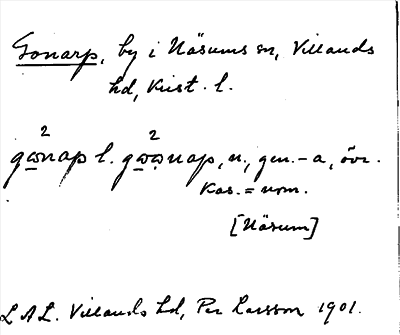 Gonarp, by i Näsums sn, Villands
hd, Krist. l.
gωnap l. gωωnap, n., gen. -a, övr.
kas. = nom.
[Näsum]
LAL. Villands hd, Per Larsson 1901.